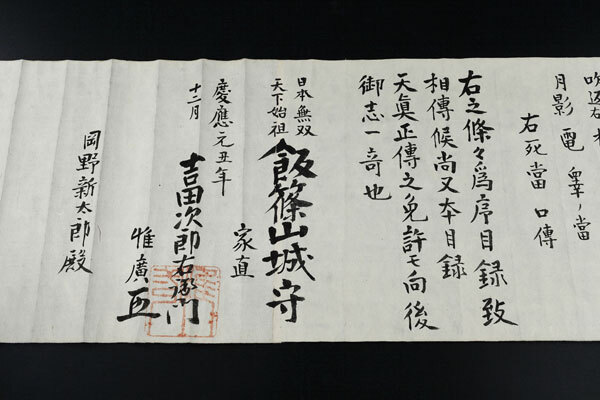 月影 電
右死當 口傳
右之條々爲序目録致
相傳候尚又本目録
天眞正傳之免許モ向後
御志一竒也
日本無双
天下始祖
飯篠山城守
家直
慶應元丑年
十二月
吉田次郎右衛門
惟廣
岡野新太郎殿